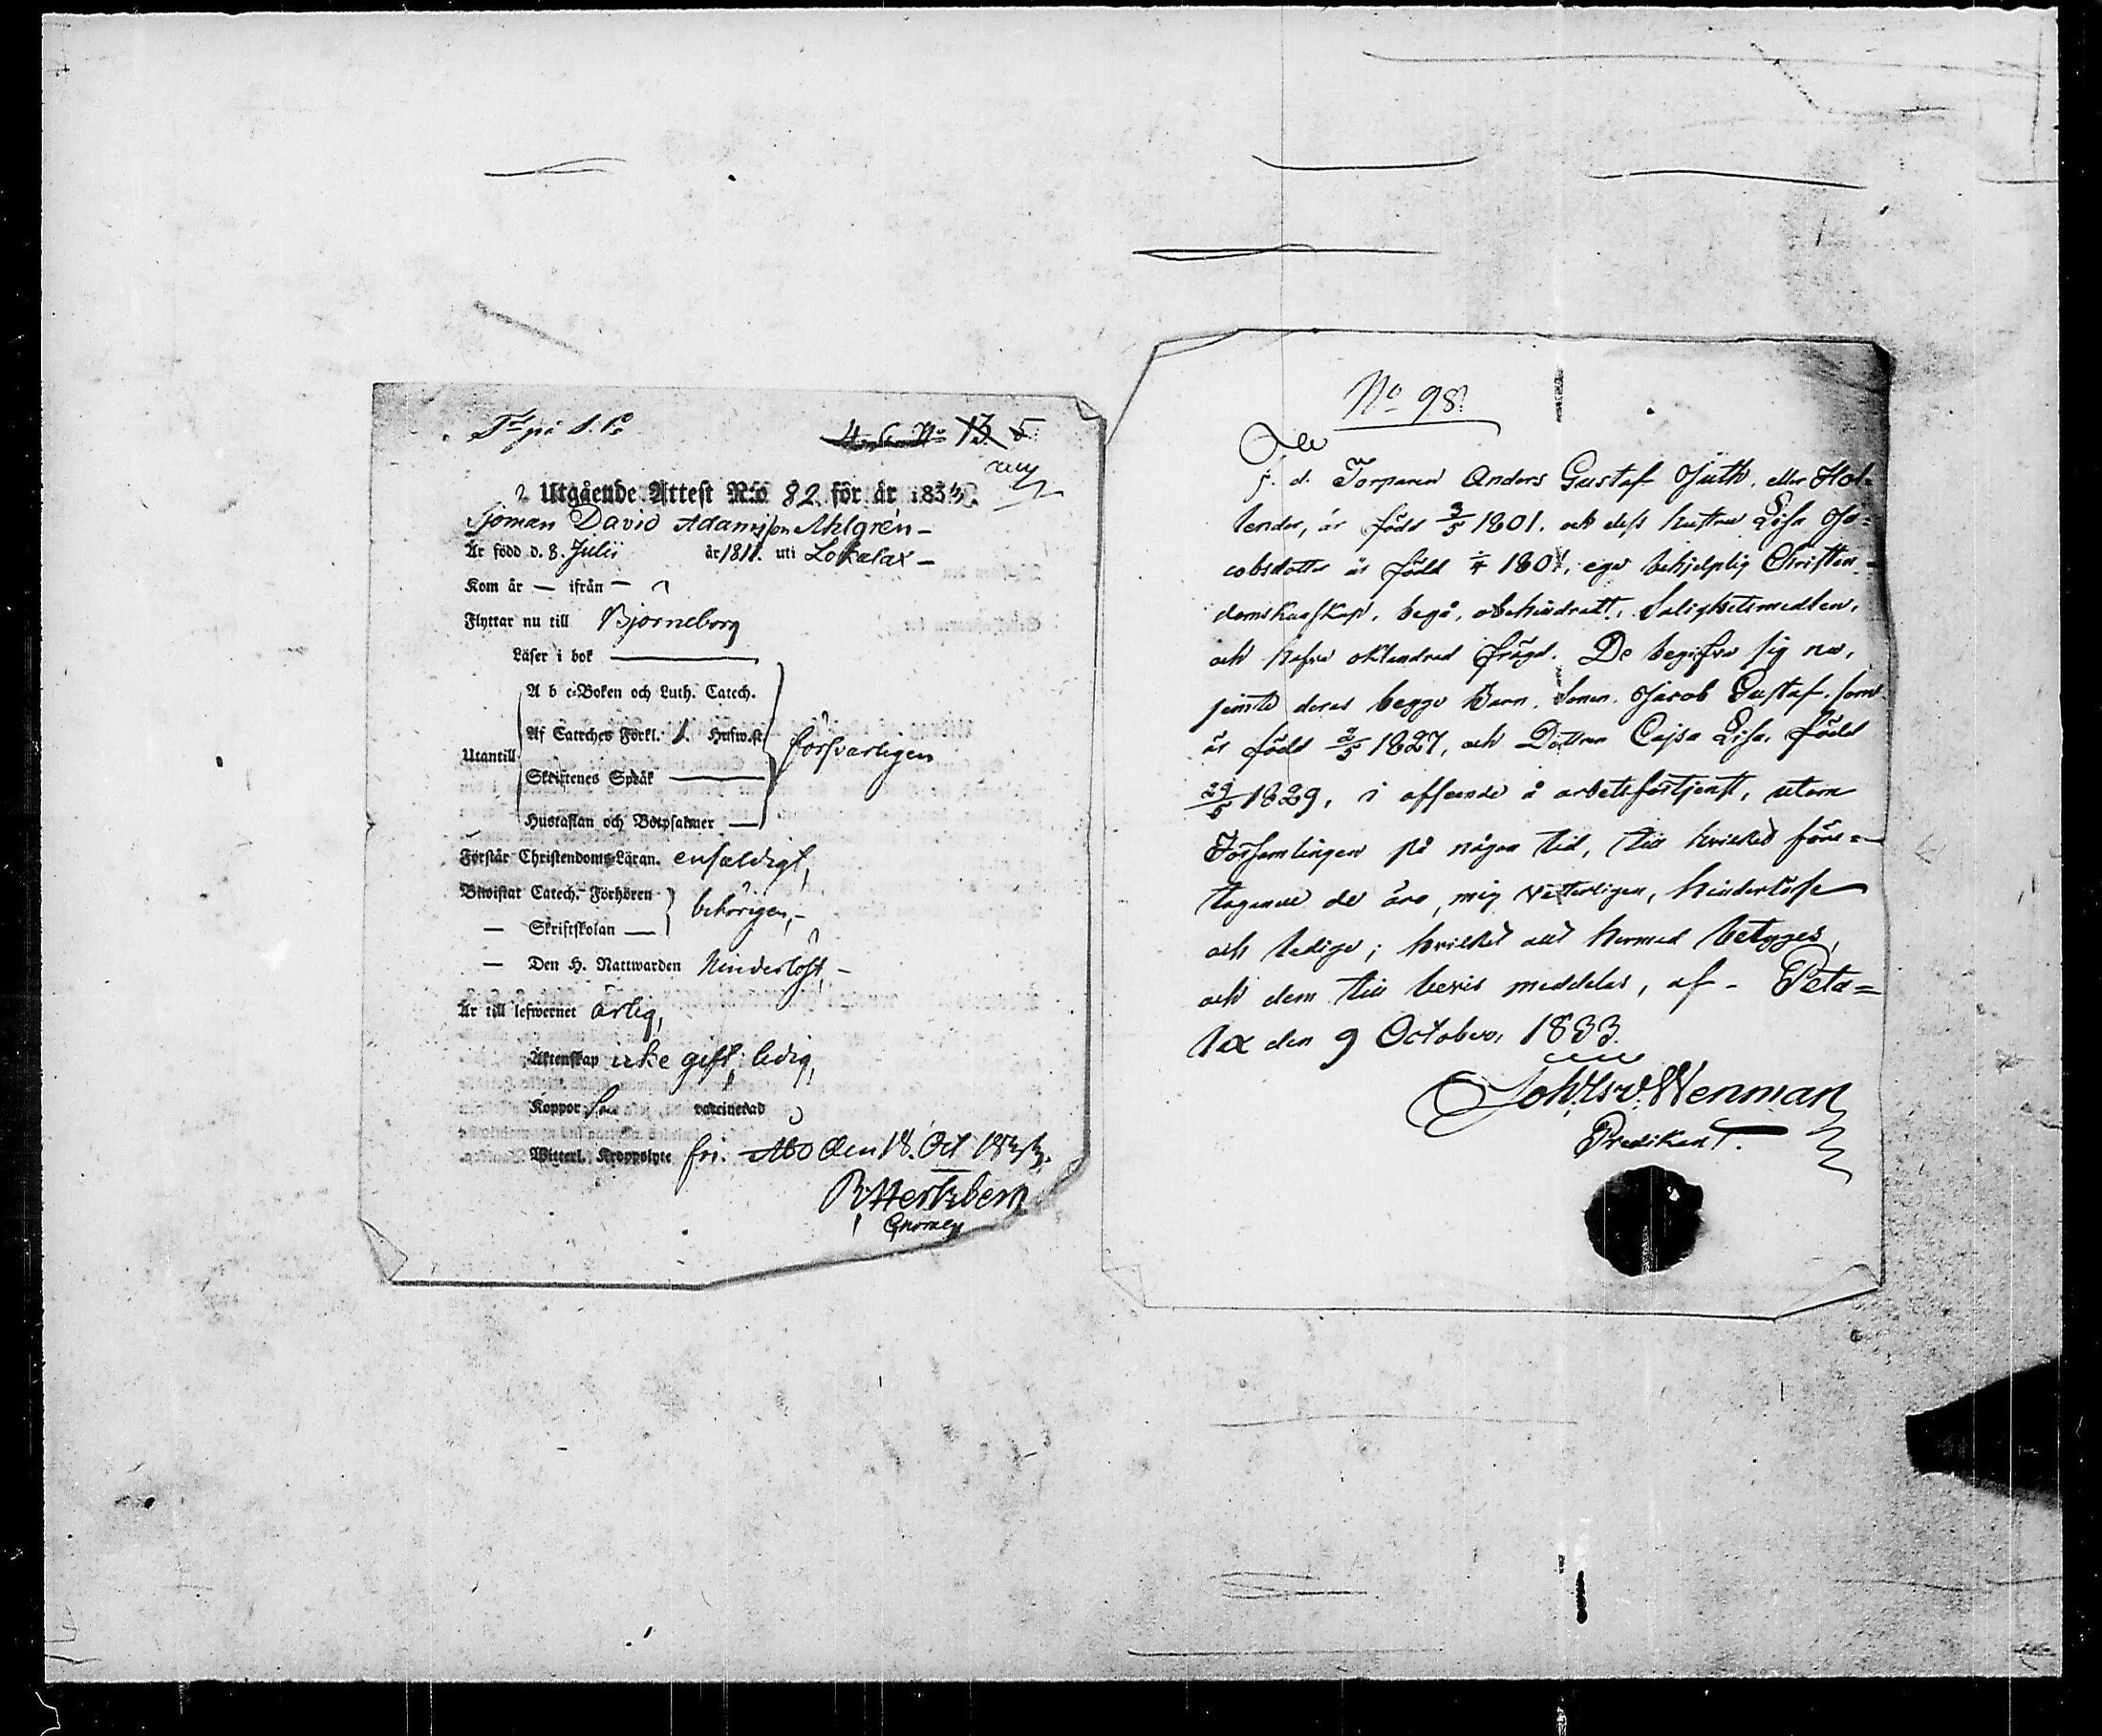 Utgående Attest N:o 82 för år 1833.
Sjöman David Adamsson Ahlgrén –
Är född d. 8. Julii år 1811. uti Lokalax –
Kom år — ifrån —
Flyttar nu till Björneborg
Läser i bok
A b c-Boken och Luth. Catech.
Af Catches Förkl. 1. Husw.st
försvarligen
Utantill
Skriftenes Språk
Hustaflan och Botpsalmer
Förstår Christendoms-Läran. enfaldigt,
Biwistat Catech.-Förhören
behörigen,–
— Skriftskolan —
— Den H. Nattwarden hinderlöst, –
Är till lefwernet ärlig,
Äktenskap icke gift; ledig,
Koppor vaccinerad
Witterl. Kroppslyte fri. Åbo den 18. Oct. 1833.
R Hertzberg
No 98.
f. d. Torparen Anders Gustaf Juth, eller Hol-
lender, är född 3/5 1801. och dess hustru Lisa Ja=
cobsdotter är född 1801, ega behjelplig Christen-
domskunskap, begå, obehindradt, Salighetsmedlen,
och hafva oklandrad frägd. De begifva sig nu,
jemte deras begge Barn, Sonen, Jacob Gustaf, som
är född 3/5 1827, och Dottren Cajsa Lisa, född
29/5 1829, i afseende å arbetsförtjenst, utom
Församlingen på någon tid, till hvilket före=
tagande de äro, mig Vetterligen, hinderlöse
och ledige; hvilket allt hermed betyges,
och dem till bevis meddelas, af – Peta=
lax den 9 October, 1833.
Joh. Wenman
Predikant.